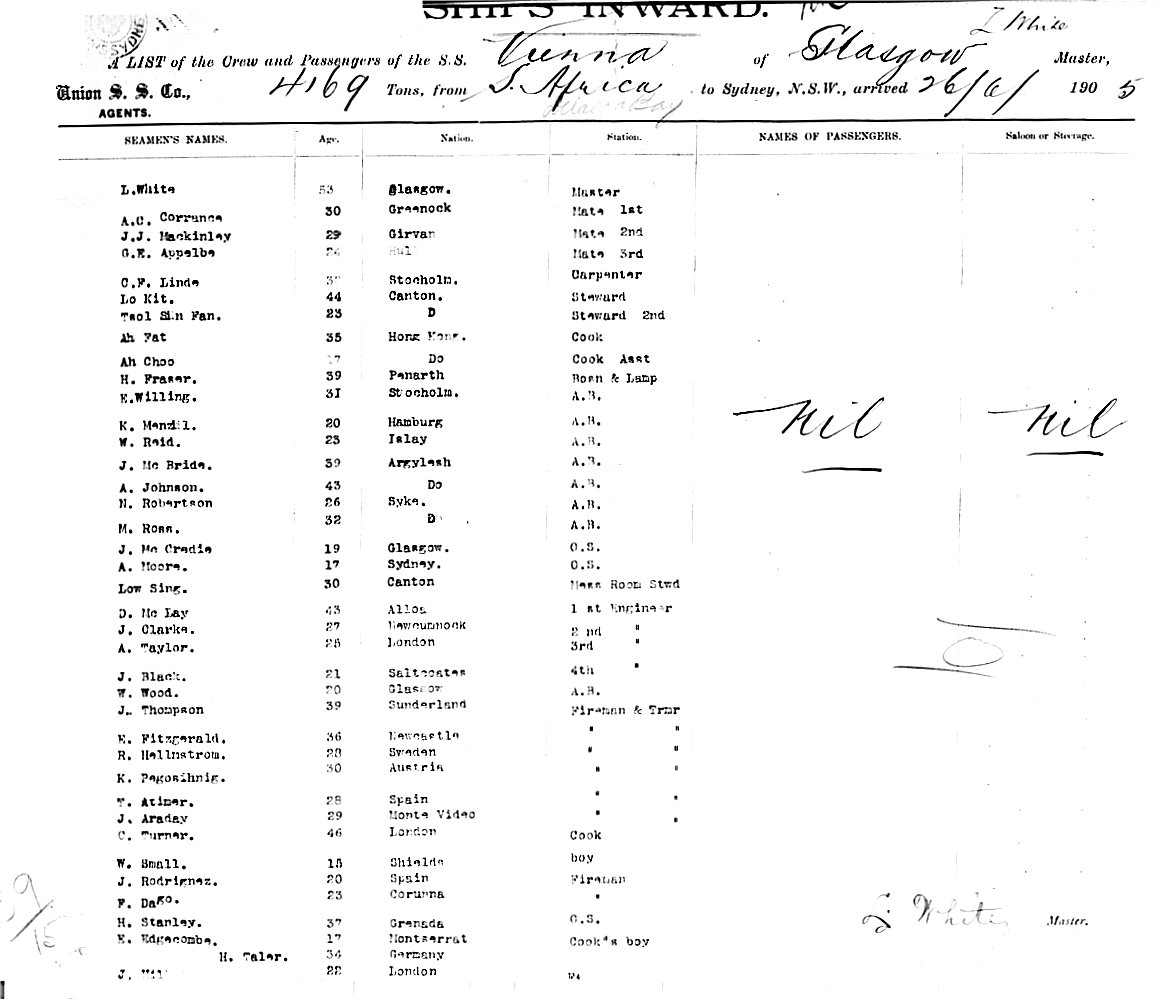 SHIPS INWARD.
L White
A LIST of the Crew and Passengers of the S.S. Vienna of Glasgow Master,
Union S. S. Co., 4169 Tons, from S. Africa to Sydney, N.S.W., arrived 26/6/ 1905
AGENTS.
SEAMEN'S NAMES. Age. Nation. Station. NAMES OF PASSENGERS. Saloon or Steerage.
L.White 53 Glasgow. Master
A.C. Corrance 30 Greenock Mate 1st
J.J. Mackinley 29 Girvan Mate 2nd
G.E. Appelbe 24 Mate 3rd
C.F. Linde Stocholm. Carpenter
Lo Kit. 44 Canton. Steward
Tsol Sin Fan. 23 D Steward 2nd
Ah Fat 35 Hong Kong. Cook
Ah Choo 17 Do Cook Asst
H. Fraser. 39 Penarth Bosn & Lamp
E.Willing. 31 Stocholm. A.B.
K. 20 Hamburg A.B. Nil Nil
W. Reid. 23 Islay A.B.
J. Mc Bride. 39 Argylesh A.B.
A. Johnson. 43 Do A.B.
N. Robertson 26 Syke. A.B.
M. Ross. 32 D A.B.
J. Mc Credie 19 Glasgow. O.S.
A. Moore. 17 Sydney. O.S.
Low Sing. 30 Canton Mess Room Stwd
D. Mc Lay 43 Alloa 1 st Engineer
J. Clarke. 27 Newcumnock 2 nd "
A. Taylor. 25 London 3rd "
J. Black. 21 Saltcoates 4th "
W. Wood. 20 Glasgow A.B.
J. Thompson 39 Sunderland Fireman & Trmr
E. Fitzgerald. 36 Newcastle " "
R. Hellnstrom. 28 Sweden " "
K. Pegosihnig. 30 Austria " "
T. Atiner. 28 Spain " "
J. Araday 29 Monte Video " "
C. Turner. 46 London Cook
W. Small. 18 Shields boy
J. Rodrignez. 20 Spain Fireman
F. Dago. 23 Corunna "
H. Stanley. 37 Grenada O.S. L. White Master.
E. Edgecombe. 17 Montserrat Cook's boy
H. Taler. 34 Germany
J. 22 London